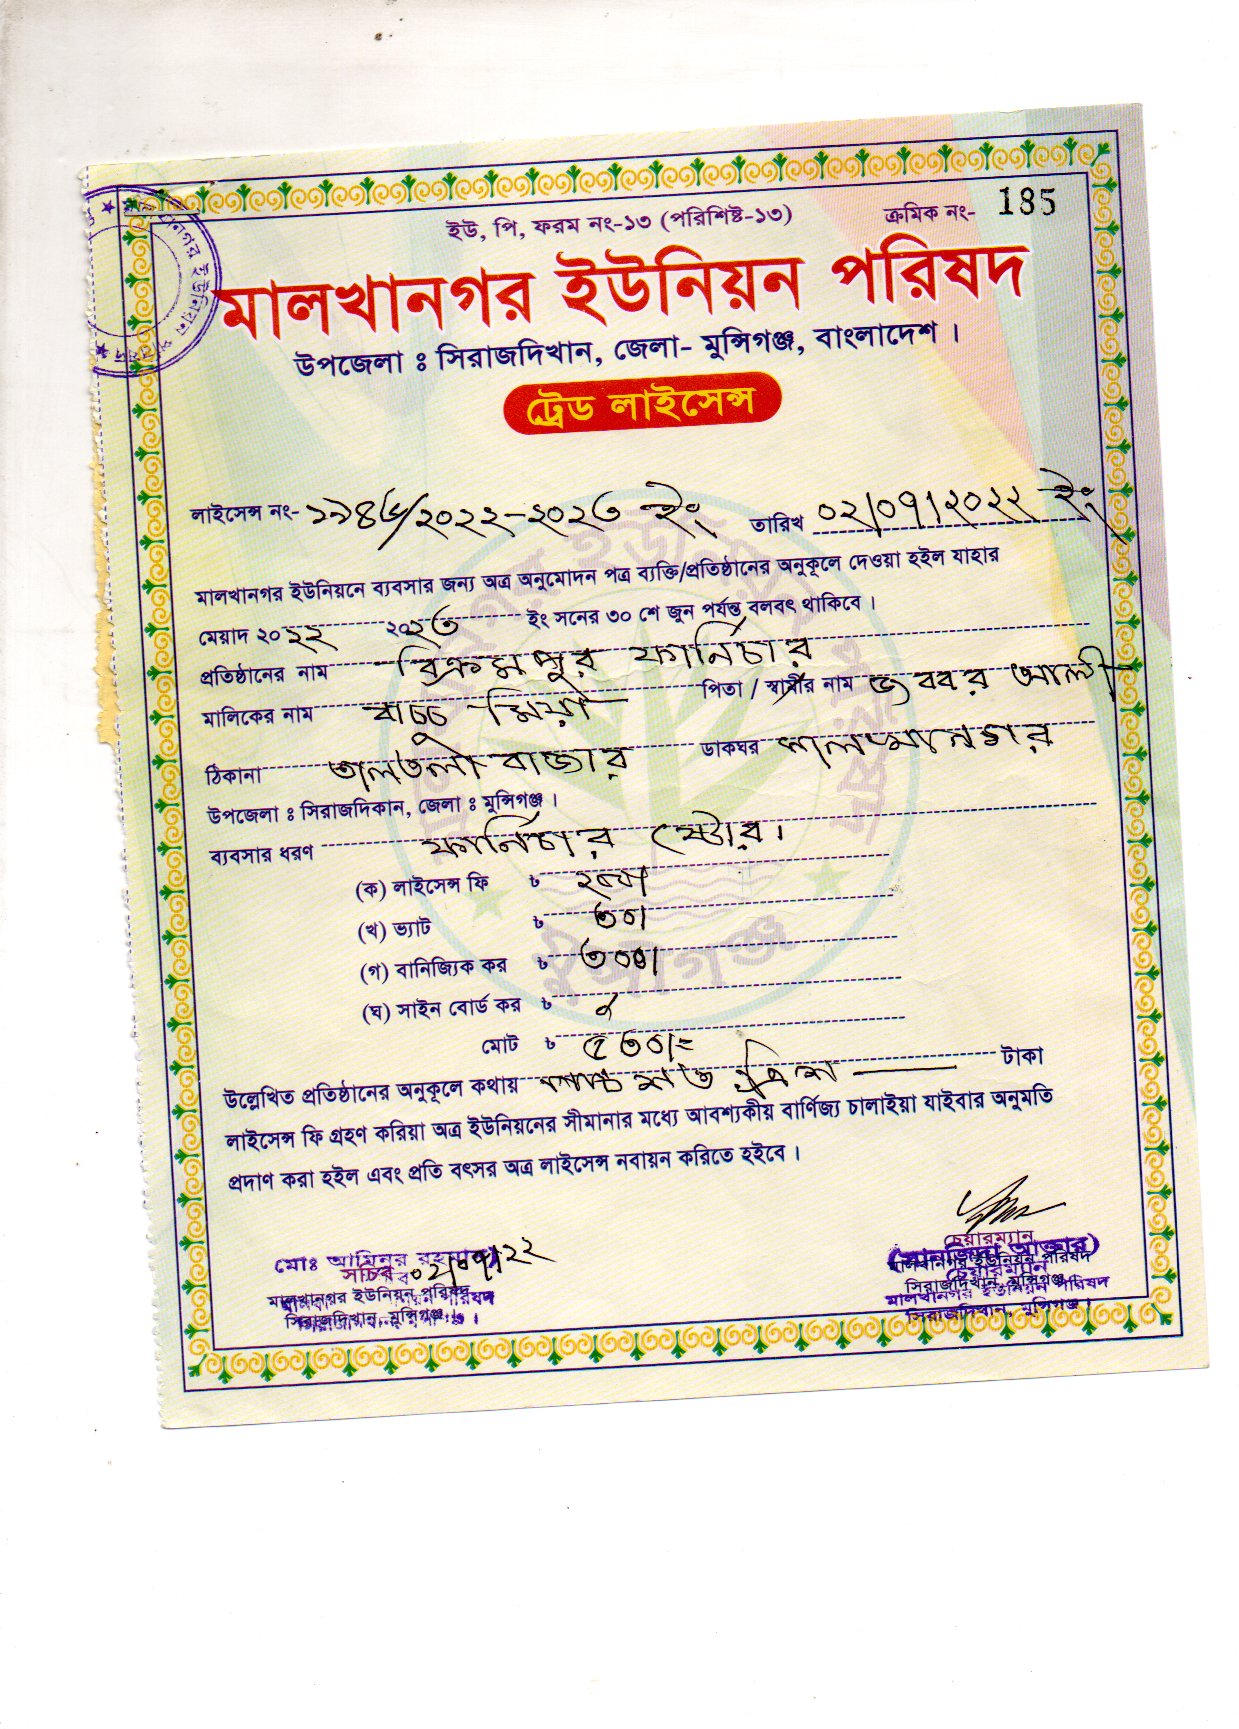 ইউ, পি, ফরম নং-১৩ (পরিশিষ্ট-১৩)
ক্রমিক নং- 185
মালখানগর ইউনিয়ন পরিষদ
উপজেলা ঃ সিরাজদিখান, জেলা- মুন্সিগঞ্জ, বাংলাদেশ।
ট্রেড লাইসেন্স
লাইসেন্স নং- /২০২২-২০২৩ ইং তারিখ ০২/০৭/২০২২ ইং
মালখানগর ইউনিয়নে ব্যবসার জন্য অত্র অনুমোদন পত্র ব্যক্তি/প্রতিষ্ঠানের অনুকূলে দেওয়া হইল যাহার
মেয়াদ ২০২২ ২০২৩ ইং সনের ৩০ শে জুন পর্যন্ত বলবৎ থাকিবে।
প্রতিষ্ঠানের নাম বিক্রমপুর ফার্নিচার
মালিকের নাম বাচ্চু মিয়া পিতা / স্বামীর নাম জববর আলী
ঠিকানা তালতলা বাজার ডাকঘর মালখানগর
উপজেলা ঃ সিরাজদিকান, জেলা ঃ মুন্সিগঞ্জ।
ব্যবসার ধরণ ফার্নিচার ষ্টোর।
(ক) লাইসেন্স ফি ৳ ২০০/
(খ) ভ্যাট ৳ ৩০/
(গ) বানিজ্যিক কর ৳ ৩০০/
(ঘ) সাইন বোর্ড কর ৳
মোট ৳ ৫৩০/=
উল্লেখিত প্রতিষ্ঠানের অনুকূলে কথায় পাঁচ শত ত্রিশ টাকা
লাইসেন্স ফি গ্রহণ করিয়া অত্র ইউনিয়নের সীমানার মধ্যে আবশ্যকীয় বার্ণিজ্য চালাইয়া যাইবার অনুমতি
প্রদাণ করা হইল এবং প্রতি বৎসর অত্র লাইসেন্স নবায়ন করিতে হইবে।
মোঃ আমিনুর রহমান
সচিব ০২/০৭/২২
মালখানগর ইউনিয়ন পরিষদ
সিরাজদিখান, মুন্সিগঞ্জ।
চেয়ারম্যান
(সানজিদা আক্তার)
মালখানগর ইউনিয়ন পরিষদ
চেয়ারম্যান
সিরাজদিখান, মুন্সিগঞ্জ।
মালখানগর ইউনিয়ন পরিষদ
সিরাজদিখান, মুন্সিগঞ্জ।